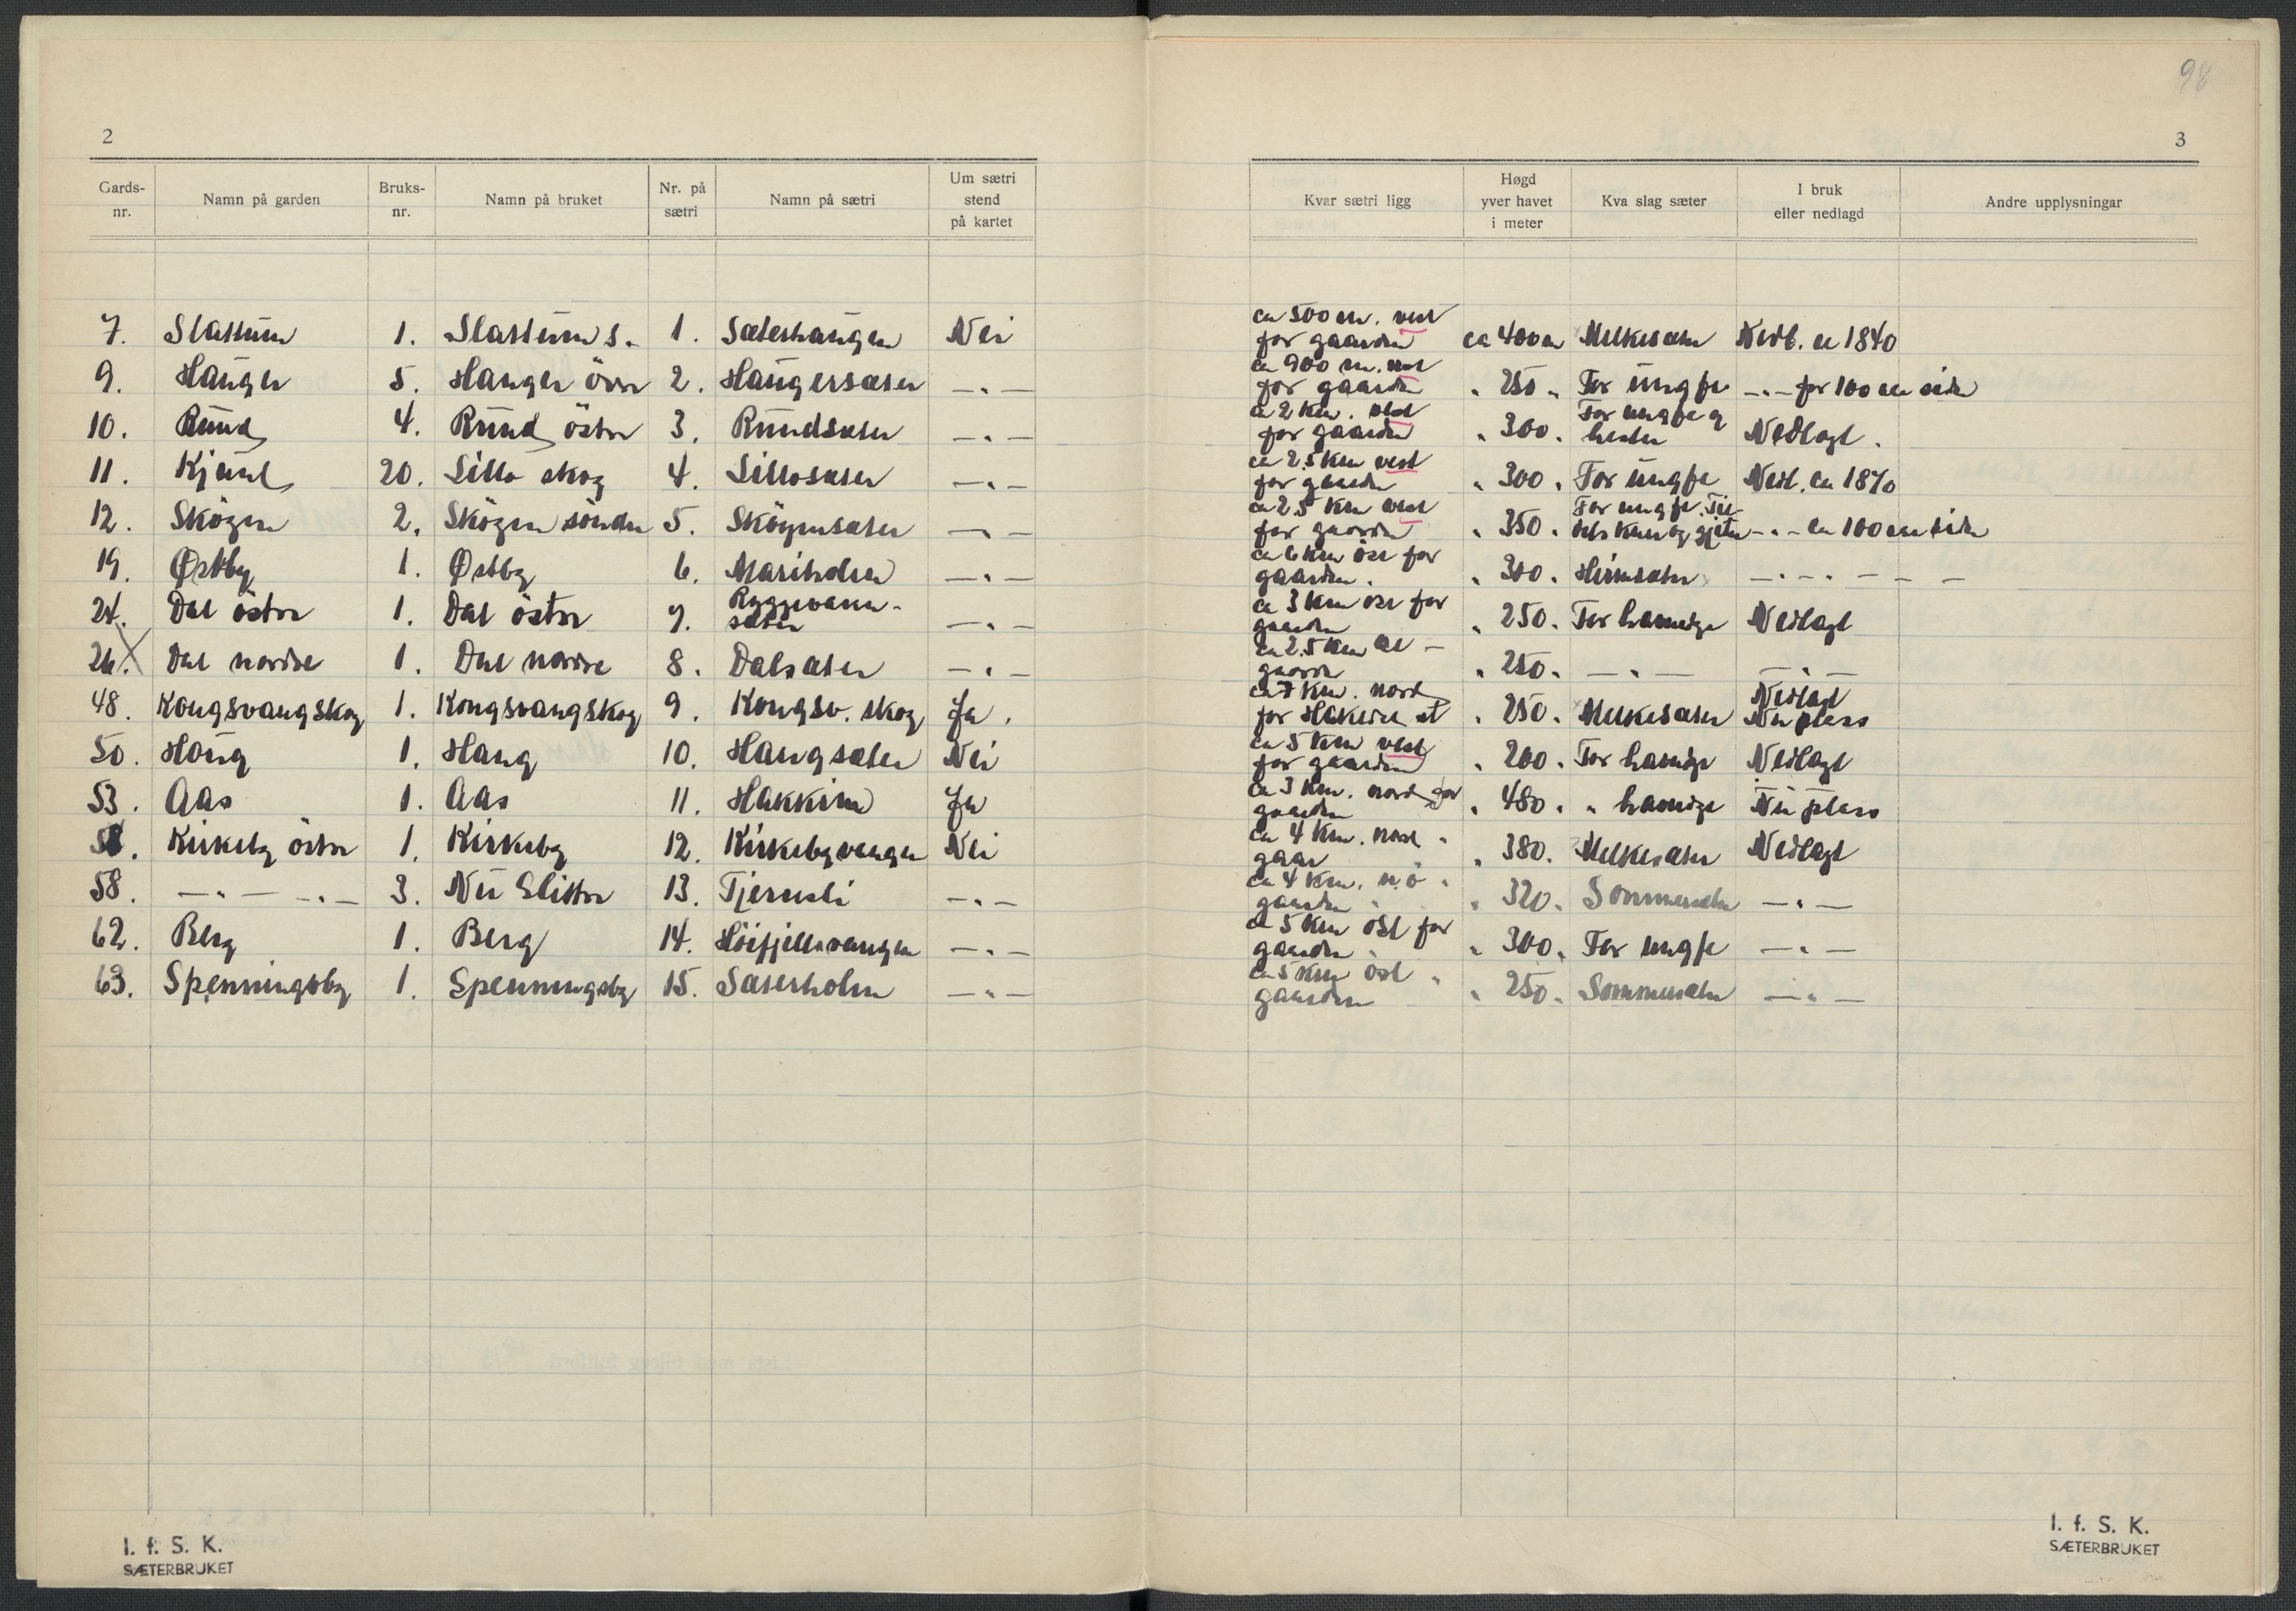 2
Gards-nr. Namn på garden Bruks-nr. Namn på bruket Nr. på sætri Namn på sætri Um sætri stend på kartet
7. Slattum 1. Slattum s. 1. Sæterhaugen Nei
9. Hauger 5. Hauger övre 2. Haugersæter —„—
10. Ruud 4. Ruud östre 3. Ruudsæter —„—
11. Kjuul 20. Lillo skog 4. Lillosæter —„—
12. Skögen 2. Skögen söndre 5. Skögensæter —„—
19. Østby 1. Østby 6. Mariholen —„—
24. Dal östre 1. Dal östre 7. Ryggevann-sæter —„—
26. Dal nordre 1. Dal nordre 8. Dalsæter —„—
48. Kongsvangskog 1. Kongsvangskog 9. Kongsv. skog Ja.
50. Haug 1. Haug 10. Haugsæter Nei
53. Aas 1. Aas 11. Hakkim Ja
Kirkeby östre 1. Kirkeby 12. Kirkebyvangen Nei
58. —„— —„— 3. Nu Slitter 13. Tjernsli —„—
62. Berg 1. Berg 14. Höifjellsvangen —„—
63. Spenningsby 1. Spenningsby 15. Sæterholen —„—
I. f. S. K.
SÆTERBRUKET
98
3
Kvar sætri ligg Høgd yver havet i meter Kva slag sæter I bruk eller nedlagd Andre upplysningar
ca 500 m. vest
for gaarden ca 400 m Melkesæter Nedl. ca 1840
ca 900 m. vest
for gaarden „ 250 „ For ungfe —„— for 100 aar siden
ca 2 km. vest For ungfe og
for gaarden „ 300 „ hester Nedlagt.
ca 2,5 km vest
for gaarden „ 300 „ For ungfe Nedl. ca 1870
ca 2,5 km vest For ungfe. Til-
for gaarden „ 350 „ dels kuer og gjeter —„— ca 100 aar siden
ca 6 km öst for
gaarden. „ 300 „ Heimsæter —„—„— — —
ca 3 km öst for
gaarden „ 250 „ For hamnge Nedlagt
ca 2,5 km —
gaarden „ 250 „ —„— —„—
ca 7 km. nord Nedlagt
for Hakedal st „ 250 „ Melkesæter Nu plass
ca 5 km vest
for gaarden „ 200 „ For hamnge Nedlagt
ca 3 km. nord for
gaarden „ 480 „ „ hamnge Nu plass
ca 4 km. nord „
gaar „ 380. Melkesæter Nedlagt
ca 4 km. n.ö „
gaarden „ 320 „ Sommersæter —„—
ca 5 km öst for
gaarden „ 300 „ For ungfe —„—
ca 5 km öst „
gaarden „ 250 „ Sommersæter —„—
I. f. S. K.
SÆTERBRUKET